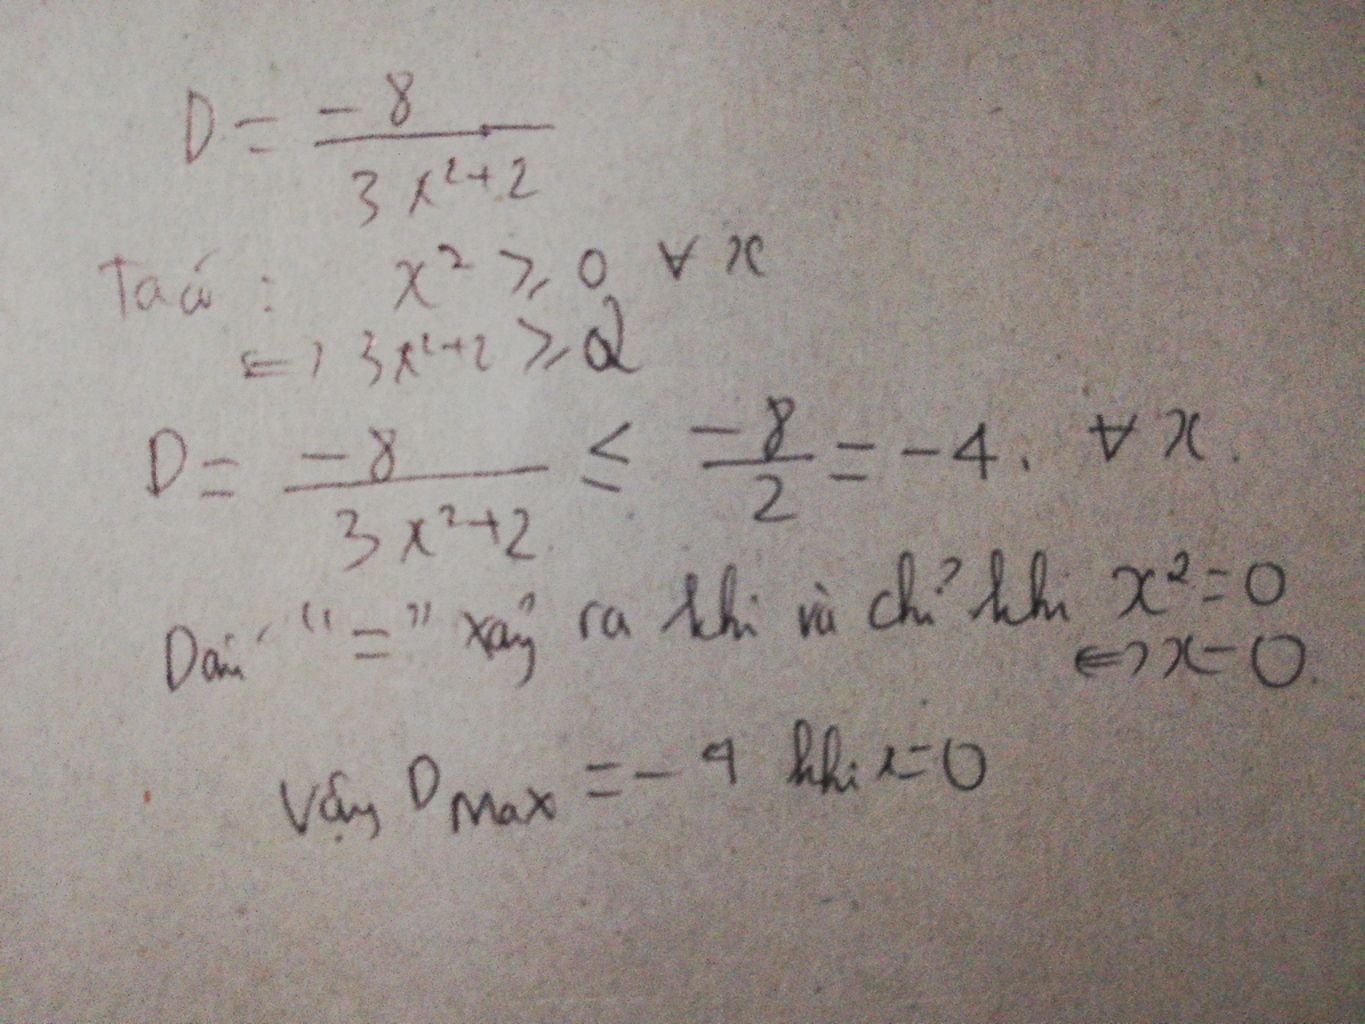 D = -8 / (3x²+2)
Ta có : x² ≥ 0 ∀ x
<=> 3x²+2 ≥ 2
D = -8 / (3x²+2) ≤ -8 / 2 = -4. ∀ x.
Dấu "=" xảy ra khi và chỉ khi x² = 0
<=> x = 0.
Vậy D Max = -4 khi x = 0